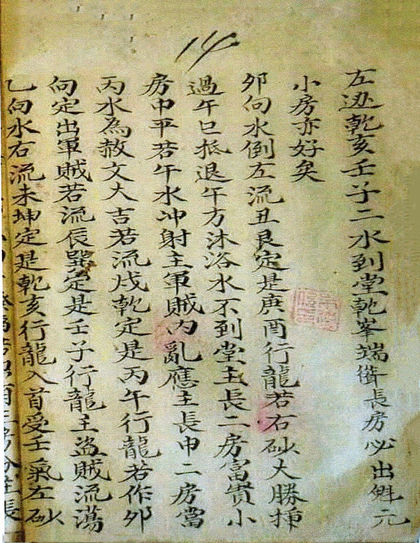 14
左迊乾亥壬子二水到堂乾峯端俻長房必出觧元
小房亦好矣
夘向水倒左流丑艮定是庚酉行龍若右砂大勝挿
過午巳抵退午方沐浴水不到堂主長二房富貴小
房中平若午水冲射主軍賊内亂應主長中二房當
丙水為赦文大吉若流戌乾定是丙午行龍若作夘
向定出軍賊若流辰巽定是壬子行龍主盗賊流蕩
乙向水右流未坤定是乾亥行龍入首受壬氣左砂